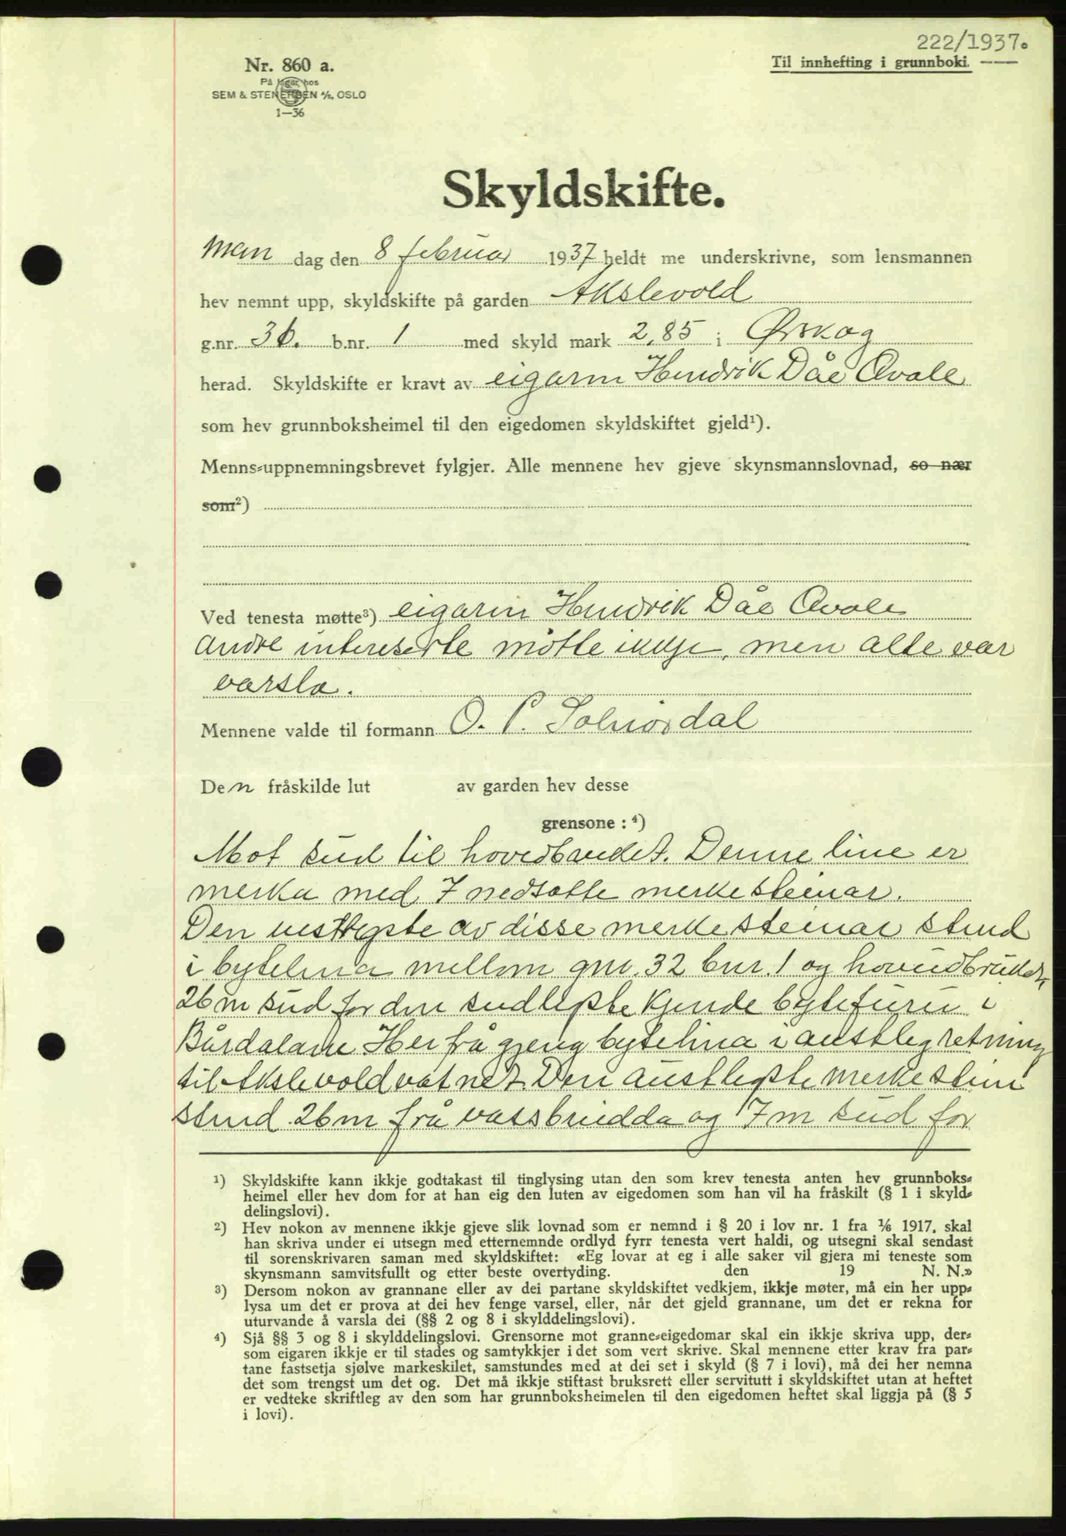 222/1937.
Nr. 860 a.
På lager hos
SEM & STENERSEN A/S, OSLO
1—36
Til innhefting i grunnboki.
Skyldskifte.
Man dag den 8 februar 1937 heldt me underskrivne, som lensmannen
hev nemnt upp, skyldskifte på garden Akslevold
g.nr. 36. b.nr. 1 med skyld mark 2,85 i Ørskog
herad. Skyldskifte er kravt av eigaren Hendrik Dåe Qvale
som hev grunnboksheimel til den eigedomen skyldskiftet gjeld¹).
Menns-uppnemningsbrevet fylgjer. Alle mennene hev gjeve skynsmannslovnad, so nær
som²)
Ved tenesta møtte³) eigaren Hendrik Dåe Qvale
andre intereserte møtte ikkje, men alle var
varsla.
Mennene valde til formann O. P. Solnørdal
Den fråskilde lut av garden hev desse
grensone : ⁴)
Mot sud til hovedbruket. Denne line er
merka med 7 nedsatte merkesteinar.
Den vestlegste av disse merkesteinar stend
i bytelina mellom gnr. 32 bnr. 1 og hovudbruket,
26 m sud for den sudlegste kjende bytefuru i
Bårdalane Her frå gjeng bytelina i austleg retning
til Akslevoldvatnet. Den austlegste merkestein
stend 26 m frå vassbredda og 7 m sud for
¹) Skyldskifte kann ikkje godtakast til tinglysing utan den som krev tenesta anten hev grunnboks-
heimel eller hev dom for at han eig den luten av eigedomen som han vil ha fråskilt (§ 1 i skyld-
delingslovi).
²) Hev nokon av mennene ikkje gjeve slik lovnad som er nemnd i § 20 i lov nr. 1 fra 1/6 1917, skal
han skriva under ei utsegn med etternemnde ordlyd fyrr tenesta vert haldi, og utsegni skal sendast
til sorenskrivaren saman med skyldskiftet: «Eg lovar at eg i alle saker vil gjera mi teneste som
skynsmann samvitsfullt og etter beste overtyding. den 19 N. N.»
³) Dersom nokon av grannane eller av dei partane skyldskiftet vedkjem, ikkje møter, må ein her upp-
lysa um det er prova at dei hev fenge varsel, eller, når det gjeld grannane, um det er rekna for
uturvande å varsla dei (§§ 2 og 8 i skylddelingslovi).
⁴) Sjå §§ 3 og 8 i skylddelingslovi. Grensorne mot granne-eigedomar skal ein ikkje skriva upp, der-
som eigaren ikkje er til stades og samtykkjer i det som vert skrive. Skal mennene etter krav fra par-
tane fastsetja sjølve markeskilet, samstundes med at dei set i skyld (§ 7 i lovi), må dei her nemna
det som trengst um det og. Det må ikkje stiftast bruksrett eller servitutt i skyldskiftet utan at heftet
er vedteke skriftleg av den som har grunnboksheimelen til den eigedomen heftet skal liggja på (§ 5
i lovi).